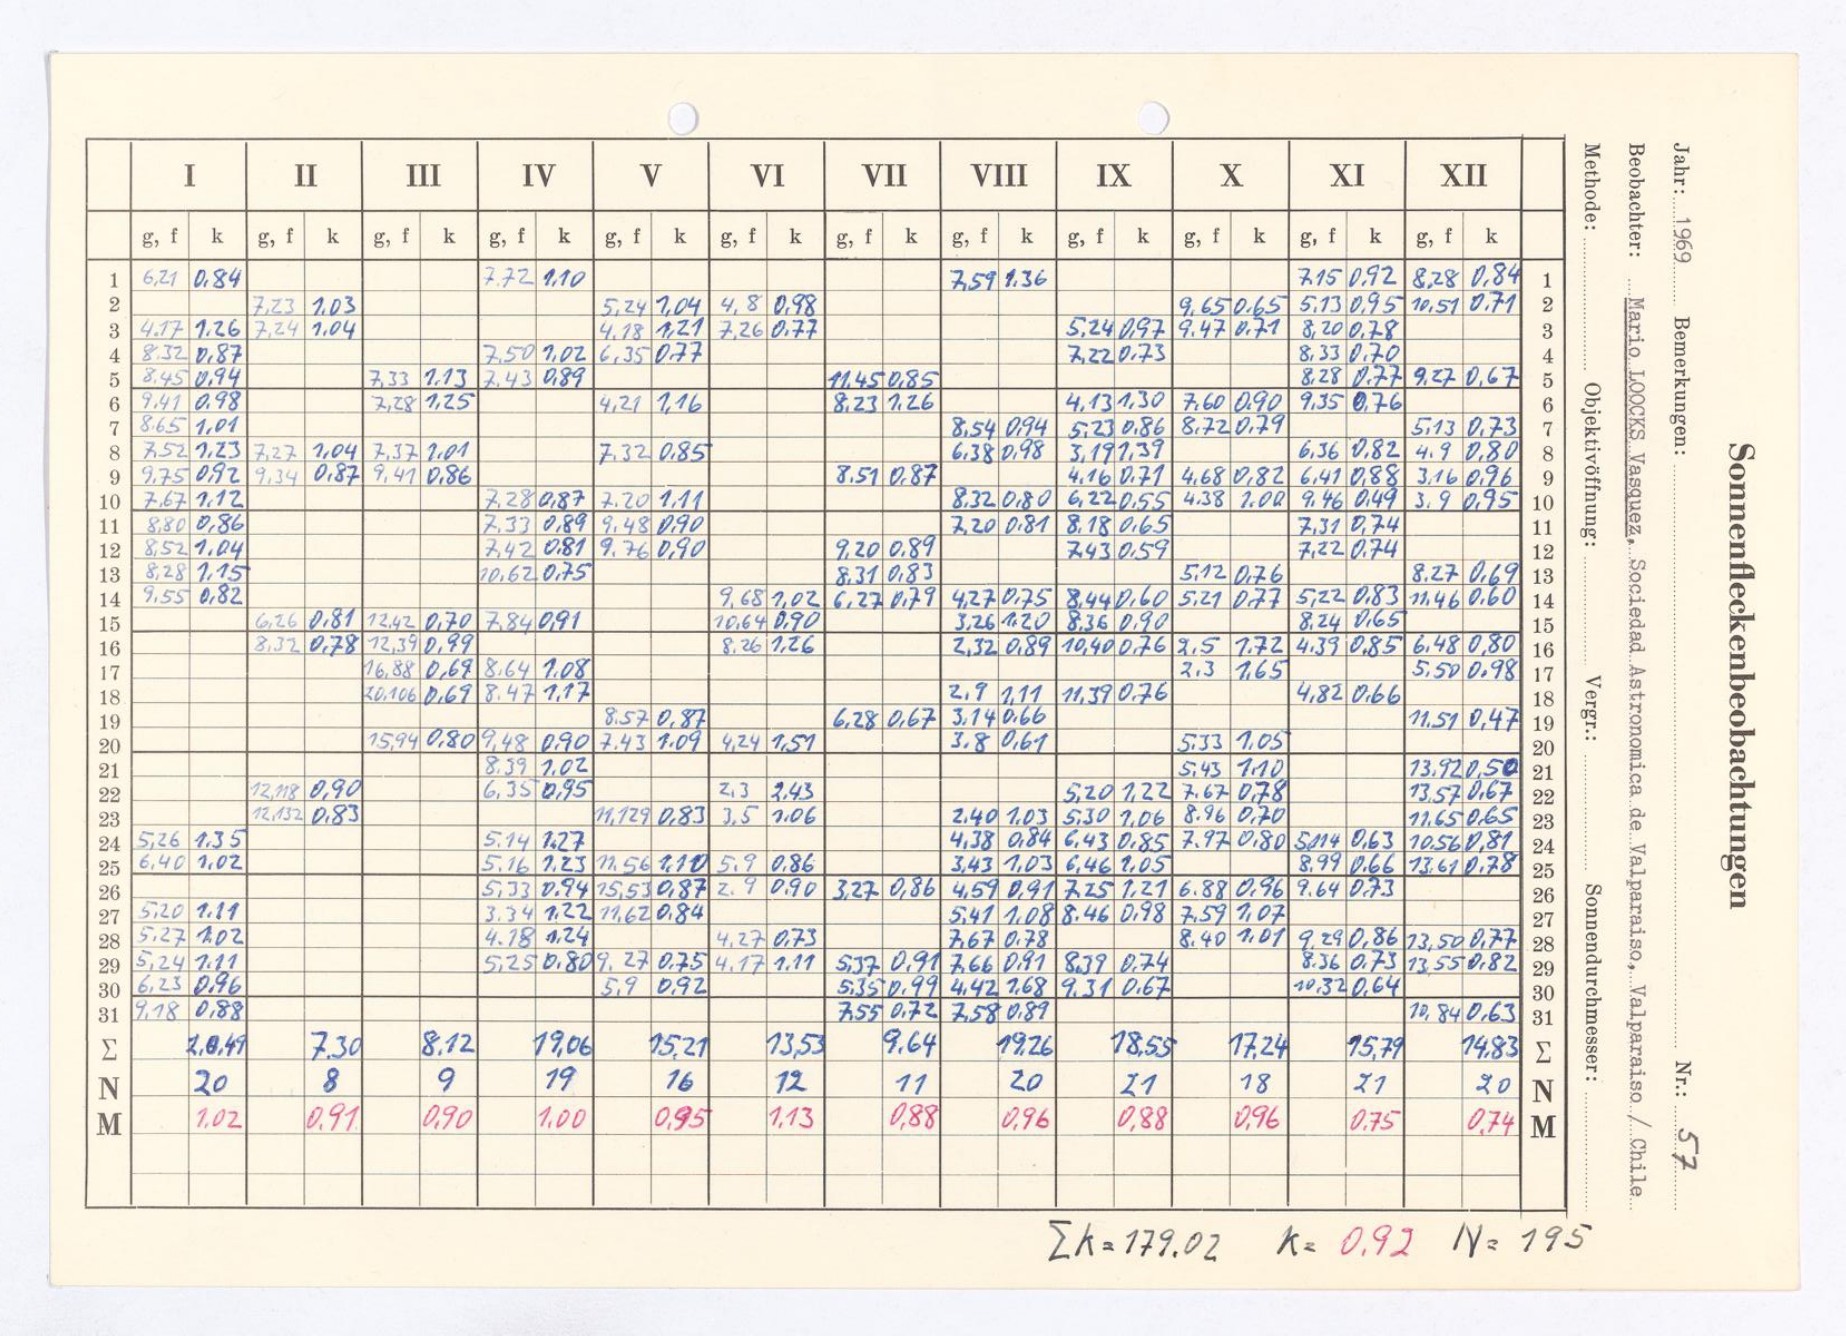 Sonnenfleckenbeobachtungen
Jahr: 1969 Bemerkungen: Nr.: 57
Beobachter: Mario LOOCKS Vasquez, Sociedad Astronomica de Valparaiso, Valparaiso / Chile
Methode: Objektivöffnung: Vergr.: Sonnendurchmesser:
I II III IV V VI VII VIII IX X XI XII
g, f k g, f k g, f k g, f k g, f k g, f k g, f k g, f k g, f k g, f k g, f k g, f k
1 6,21 0,84 7.72 1.10 7,59 1.36 7.15 0,92 8,28 0,84 1
2 7,23 1.03 5,24 1,04 4,8 0,98 9,65 0.65 5,13 0,95 10,51 0,71 2
3 4.17 1.26 7,24 1,04 4,18 1,21 7,26 0,77 5,24 0,97 9,47 0,71 8,20 0,78 3
4 8.32 0,87 7,50 1,02 6,35 0,77 7,22 0,73 8,33 0,70 4
5 8.45 0,94 7,33 1.13 7,43 0,89 11.45 0,85 8,28 0,77 9,27 0,67 5
6 9,41 0.98 7,28 1,25 4,21 1,16 8,23 1.26 4,13 1,30 7.60 0,90 9,35 0,76 6
7 8.65 1,01 8,54 0,94 5,23 0,86 8,72 0,79 5,13 0,73 7
8 7,52 1,23 7,27 1,04 7,37 1.01 7,32 0,85 6.38 0,98 3,19 1,39 6,36 0,82 4.9 0,80 8
9 9,75 0,92 9,34 0,87 9,41 0,86 8.51 0,87 4.16 0,71 4.68 0,82 6,41 0,88 3,16 0,96 9
10 7.67 1,12 7,28 0,87 7.20 1,11 8.32 0,80 6,22 0,55 4.38 1.00 9,46 0,49 3.9 0,95 10
11 8,80 0,86 7,33 0,89 9,48 0,90 7,20 0.81 8.18 0,65 7,31 0,74 11
12 8,52 1,04 7,42 0.81 9.76 0,90 9,20 0,89 7,43 0,59 7,22 0,74 12
13 8,28 1,15 10,62 0,75 8.31 0,83 5,12 0,76 8.27 0,69 13
14 9,55 0,82 9,68 1,02 6,27 0,79 4,27 0,75 8,44 0,60 5,21 0,77 5,22 0,83 11,46 0.60 14
15 6,26 0,81 12,42 0,70 7,84 0,91 10,64 0,90 3,26 1.20 8,36 0,90 8,24 0,65 15
16 8,32 0,78 12,39 0,99 8,26 1,26 2,32 0,89 10,40 0,76 2,5 1,72 4,39 0,85 6.48 0,80 16
17 16,88 0,69 8,64 1.08 2.3 1,65 5,50 0,98 17
18 20,106 0,69 8.47 1,17 2,9 1,11 11,39 0,76 4,82 0,66 18
19 8.57 0,87 6,28 0,67 3,14 0.66 11,51 0,47 19
20 15,94 0,80 9,48 0,90 7.43 1.09 4,24 1,51 3.8 0,61 5.33 1,05 20
21 8.39 1.02 5,43 1.10 13.92 0,50 21
22 12,118 0,90 6,35 0,95 2,3 2,43 5,20 1,22 7.67 0,78 13,57 0,67 22
23 12,132 0,83 11,129 0,83 3,5 1.06 2.40 1.03 5,30 1,06 8.96 0,70 11.65 0.65 23
24 5,26 1.35 5.14 1.27 4,38 0,84 6,43 0,85 7.97 0,80 5,114 0,63 10.56 0,81 24
25 6.40 1.02 5.16 1,23 11.56 1.10 5.9 0,86 3,43 1.03 6,46 1.05 8,99 0,66 13.61 0,78 25
26 5,33 0.94 15,53 0,87 2.9 0,90 3,27 0,86 4,59 0,91 7.25 1,21 6.88 0,96 9.64 0,73 26
27 5,20 1.11 3.34 1,22 11,62 0,84 5.41 1,08 8.46 0,98 7,59 1,07 27
28 5,27 1.02 4.18 1.24 4,27 0,73 7,67 0,78 8.40 1,01 9,29 0,86 13,50 0,77 28
29 5,24 1.11 5,25 0.80 9,27 0.75 4,17 1.11 5,37 0,91 7,66 0,91 8,39 0,74 8.36 0,73 13,55 0,82 29
30 6,23 0,96 5,9 0,92 5.35 0,99 4,42 1,68 9.31 0,67 10,32 0,64 30
31 9,18 0,88 7,55 0,72 7,58 0,89 10,84 0,63 31
Σ 7.30 8.12 19,06 15,21 13,53 9.64 19.26 18,55 17,24 15,79 14,83 Σ
N 20 8 9 19 16 12 11 20 21 18 21 20 N
M 1,02 0,91 0,90 1.00 0,95 1,13 0,88 0,96 0,88 0,96 0.75 0,74 M
Σk = 179.02 k = 0,92 N = 195